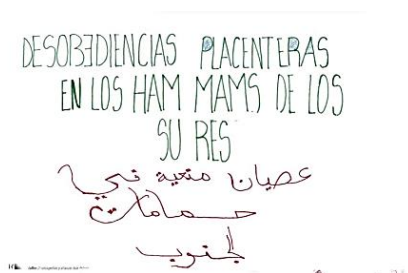 DESOBEDIENCIAS PLACENTERAS
EN LOS HAM MAMS DE LOS
SU RES
عصيان متعية في
حمامات
الجنوب